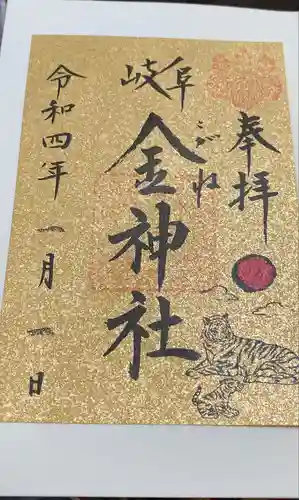 奉拝
岐阜
こがね
金神社
令和四年 一月 一日